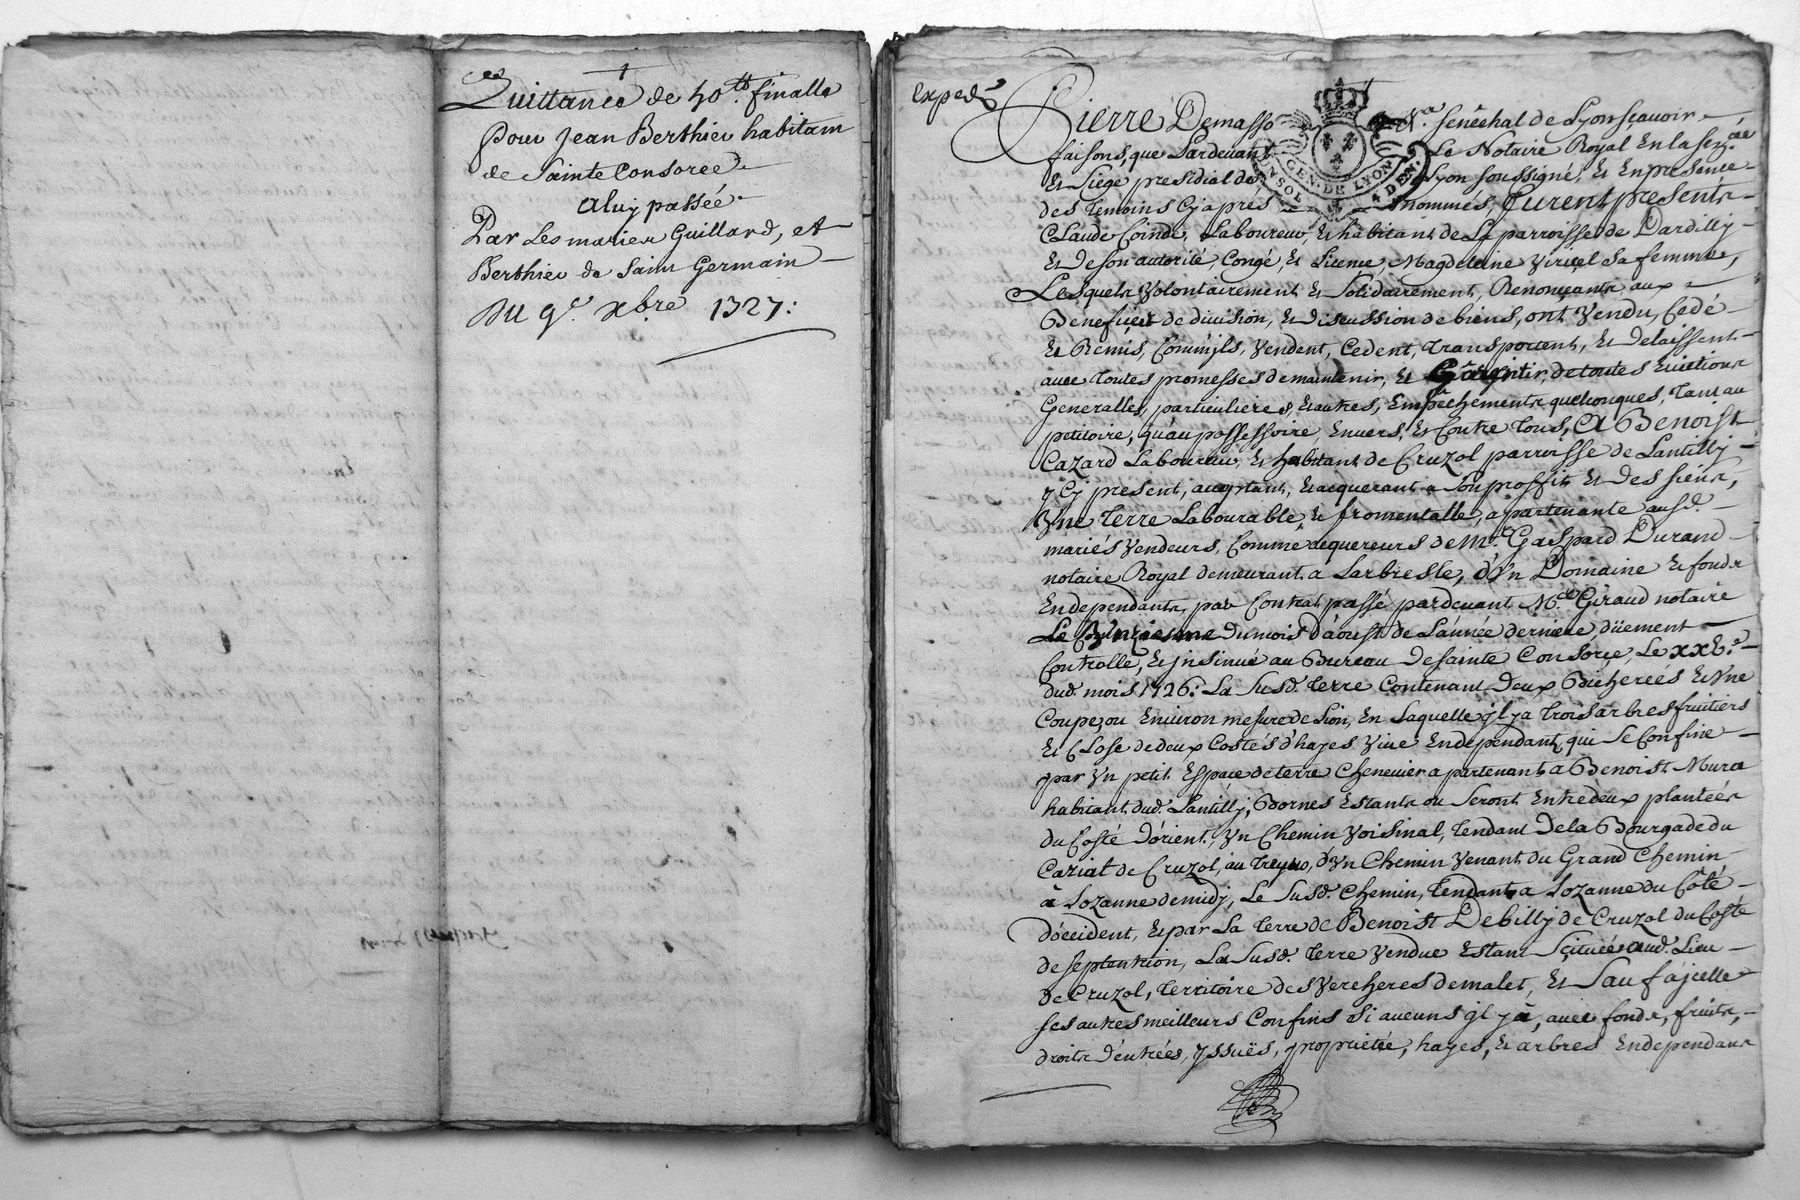 Quittance de 40.tt finalle
pour Jean Berthier habitam
de Sainte Consorce
aluy passée
Par Les mariez Guillard, et
Berthier de Saint Germain
Du 9.e xbre 1727:
Exped.é
Pierre Demasso N.a Senêchal de Lyon sçavoir
faisons, que Pardevant Le Notaire Royal En la Sen.cée
Et Siege presidial de Lyon soussigné, Et En presence
des Temoins Cyapres nommés, furent presents
Claude Coindè, Laboureur, Et habitant de La parroisse de Dardilly
Et De son autorité, Congé, Et Licence, Magdeleine Viricel Sa femme,
Lesquels Volontairement Et Solidairement, Renonçants aux
Benefices de division, Et Discussion de biens, ont Vendu, Cedé
Et Remis, Comm'jls, Vendent, Cedent, Transportent, Et Delaissent
avec Toutes promesses de maintenir, Et Garentir, de toutes Evictions
Generalles, particulieres, Et autres, Empêchements quelconques, Tant au
petitoire, qu'au possessoire, Envers, Et Contre Tous, A Benoist
Cazard Laboureur, Et habitant de Cruzol parroisse de Lantilly
y Cy present, acceptant, Et acquerant a Son proffit Et Des Siens,
Vne Terre Labourable, Et fromentalle, apartenante ausd.
mariés Vendeurs, Comme acquereurs de M.e Gaspard Durand
notaire Royal demeurant a Larbresle, d'Vn Domaine Et fonds
Endependants, par Contrat passé pardevant M.e Giraud notaire
Le Du mois D'aoust de L'année derniere, düement
Controllé, Et jnsinué au Bureau De Sainte Consorce, Le xxv.e
dud. mois 1726: La Susd. Terre Contenant Deux Bicherées Et Vne
Coupe, ou Environ mesure de Lion, En Laquelle jl ya Trois arbres fruitiers
Et Close de deux Costés d'hayes Vive Endependant, qui Se Confine
par Vn petit Espace de terre Chenevier apartenant a Benoist Mure
habitant dud. Lantilly, Bornes Estants ou Seront Entredeux plantées
du Costé D'orient, Vn Chemin Voisinal, Tendant De la Bourgade du
Caziat de Cruzol, au d'Vn Chemin Venant du Grand Chemin
à Lozanne de midy, Le Susd. Chemin, Tendant a Lozanne du Côté
D'occident, Et par La Terre de Benoist Debilly de Cruzol du Costé
de Septentrion, La Susd. Terre Vendue Estant Scituée aud. Lieu
de Cruzol, Territoire des Vercheres de malet, Et Sauf a jcelle
ses autres meilleurs Confins Si aucuns jl y à, avec fonds, fruits,
droits d'entrées, yssuës, proprietée, hayes, Et arbres Endependans